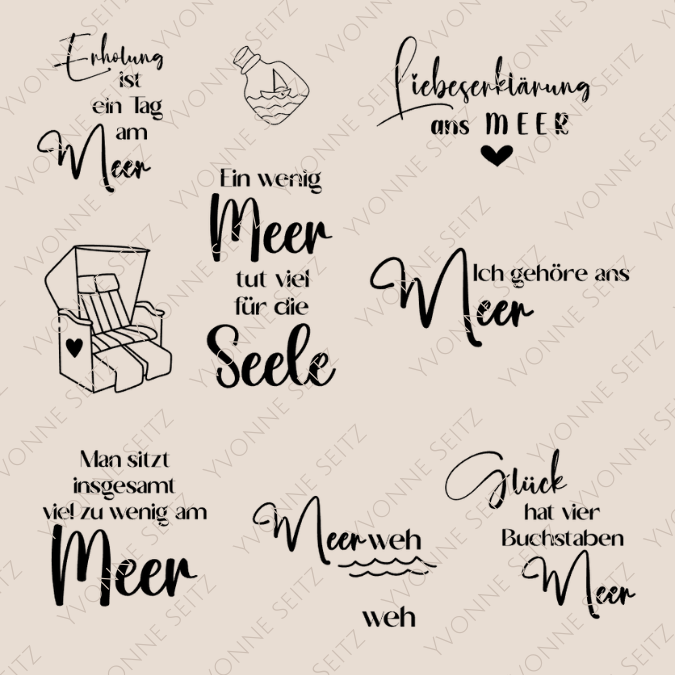 Erholung
ist
ein Tag
am
Meer
Liebeserklärung
ans MEER
Ein wenig
Meer
tut viel
für die
Seele
Ich gehöre ans
Meer
Man sitzt
insgesamt
viel zu wenig am
Meer
Meerweh
weh
Glück
hat vier
Buchstaben
Meer
YVONNE SEITZ